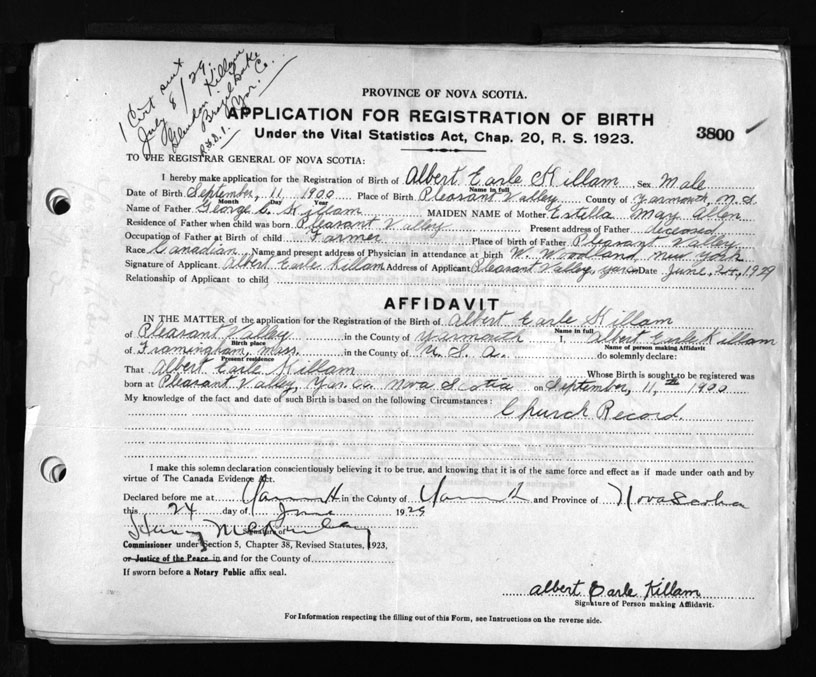 1 Cert sent
July 8/29
Glendon Killam
Brazil Lake
R.R.D. 1. Yar. Co.
PROVINCE OF NOVA SCOTIA.
APPLICATION FOR REGISTRATION OF BIRTH
3800 ✓
Under the Vital Statistics Act, Chap. 20, R. S. 1923.
TO THE REGISTRAR GENERAL OF NOVA SCOTIA:
I hereby make application for the Registration of Birth of Albert Earle Killam Sex Male
Name in full
Date of Birth September, 11 1900 Place of Birth Pleasant Valley County of Yarmouth, N.S.
Month Day Year
Name of Father George C. Killam MAIDEN NAME of Mother Estella May Allen
Residence of Father when child was born Pleasant Valley Present address of Father deceased
Occupation of Father at Birth of child Farmer Place of birth of Father Pleasant Valley
Race Canadian Name and present address of Physician in attendance at birth W. Woodland New York
Signature of Applicant Albert Earle Killam Address of Applicant Pleasant Valley, Yar Co Date June, 1929
Relationship of Applicant to child
AFFIDAVIT
IN THE MATTER of the application for the Registration of the Birth of Albert Earle Killam
Name in full
of Pleasant Valley in the County of Yarmouth I, Albert Earle Killam
Birth place Name of person making Affidavit
of Framingham, Mass. in the County of U.S.A. do solemnly declare:
Present residence
That Albert Earle Killam Whose Birth is sought to be registered was
born at Pleasant Valley, Yar. Co. Nova Scotia on September, 11, th 1900
My knowledge of the fact and date of such Birth is based on the following Circumstances:
Church Record.
I make this solemn declaration conscientiously believing it to be true, and knowing that it is of the same force and effect as if made under oath and by
virtue of The Canada Evidence Act.
Declared before me at Yarmouth in the County of Yarmouth and Province of Nova Scotia
this 24 day of June 1929
Commissioner under Section 5, Chapter 38, Revised Statutes, 1923,
or Justice of the Peace in and for the County of
If sworn before a Notary Public affix seal.
Albert Earle Killam
Signature of Person making Affidavit.
For Information respecting the filling out of this Form, see Instructions on the reverse side.